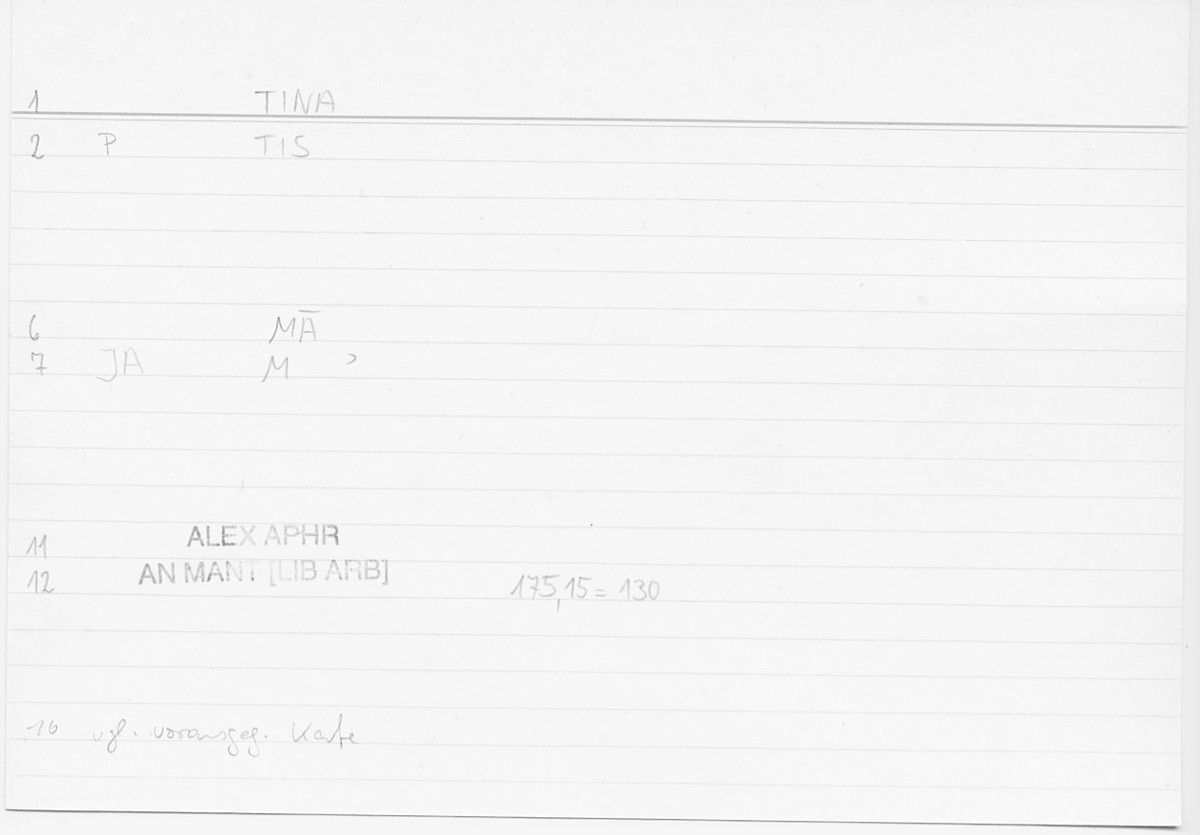 1 TINA
2 P TIS
6 MĀ
7 JA M ɔ
11 ALEX APHR
12 AN MANT [LIB ARB] 175,15 = 130
16 vgl. vorausgeg. Karte